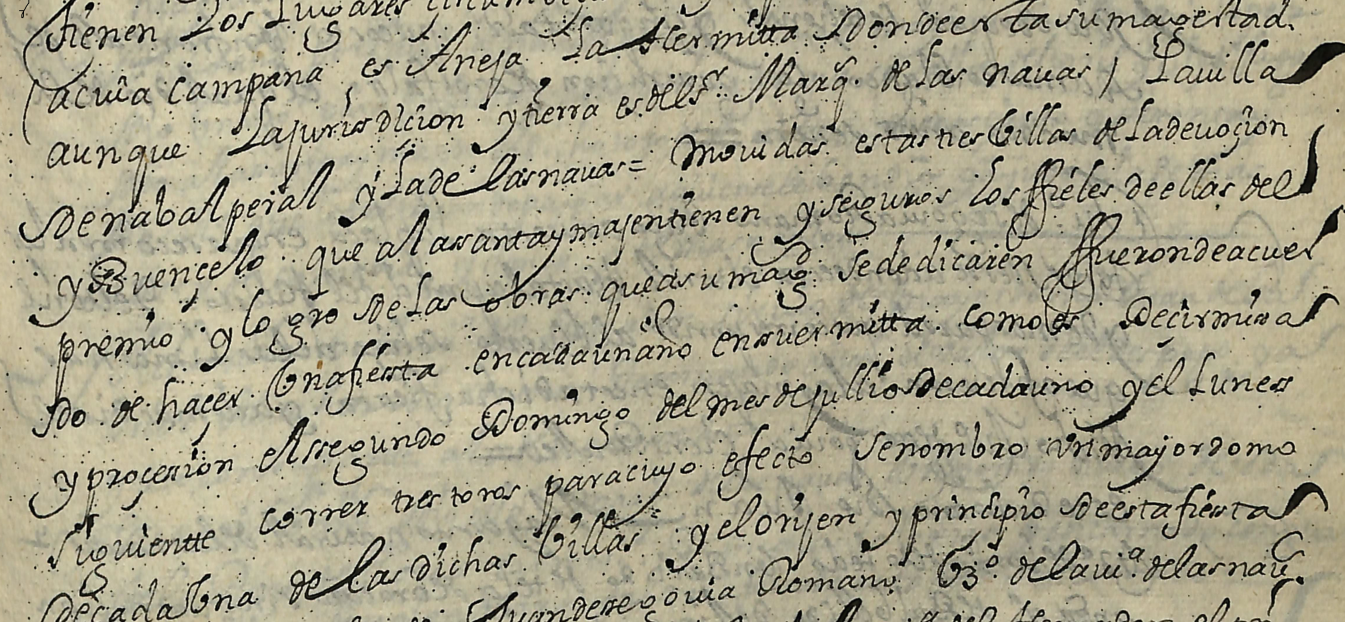 tienen Los Lugares
acuia campana es Aneja La Hermitta Donde esta su magestad.
aunque La jurisdicion y tierra es del Sr. Marq. de Las nauas / La uilla
De nabalperal y La de Las nauas = Mouidas estas tres Villas de La deuoçion
y Buen çelo que a La santa ymajen tienen y seguros Los ffieles de ellas del
premio y Logro De Las obras que a su magd. se dedicaren ffueron de acuer
do de haçer Vna fiesta en cada un año en su ermitta como es Deçir missa
y proçesion el segundo Domingo del mes de jullio De cada uno y el Lunes
siguientte correr tres toros para cuyo efecto se nombro un mayordomo
De cada Vna de Las dichas Villas y el orijen y prinçipio De esta fiesta
Juan de segouia Romano Vzº. de La uiª. de Las nau.